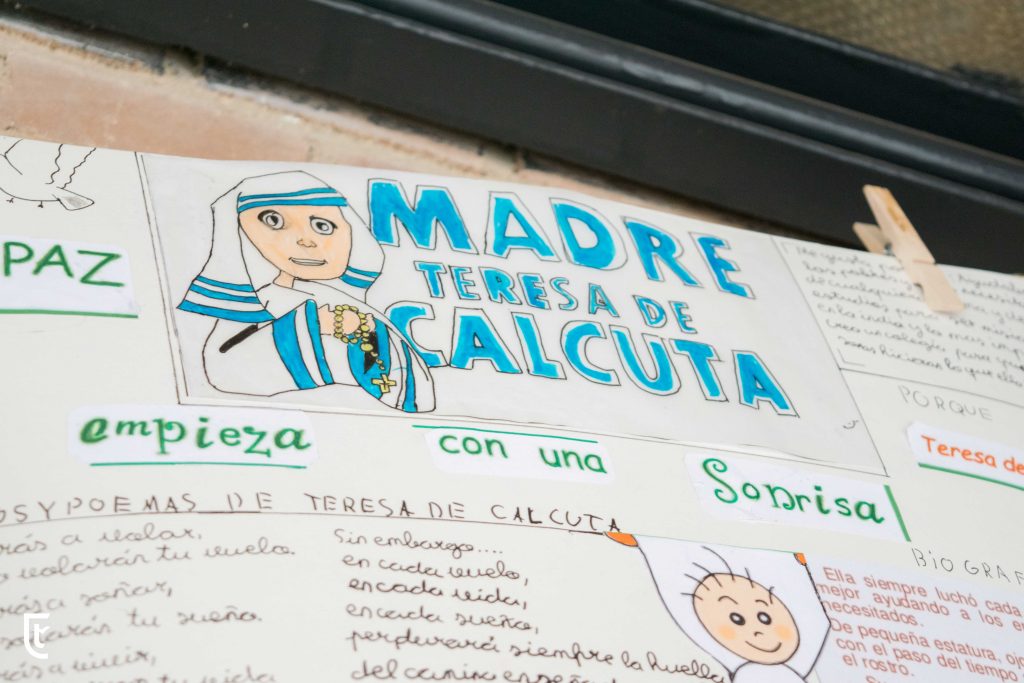 PAZ
MADRE
TERESA DE
CALCUTA
empieza
con una
Sonrisa
PORQUE
Teresa de
OS Y POEMAS DE TERESA DE CALCUTA
rás a volar,
o volarán tu vuelo.
rás a soñar,
soñarán tu sueño.
rás a vivir,
Sin embargo....
en cada vuelo,
en cada vida,
en cada sueño,
perdurará siempre la huella
del camino enseñado
BIOGRAF
Ella siempre luchó cada
mejor ayudando a los en
necesitados.
De pequeña estatura, ojo
con el paso del tiempo
el rostro.